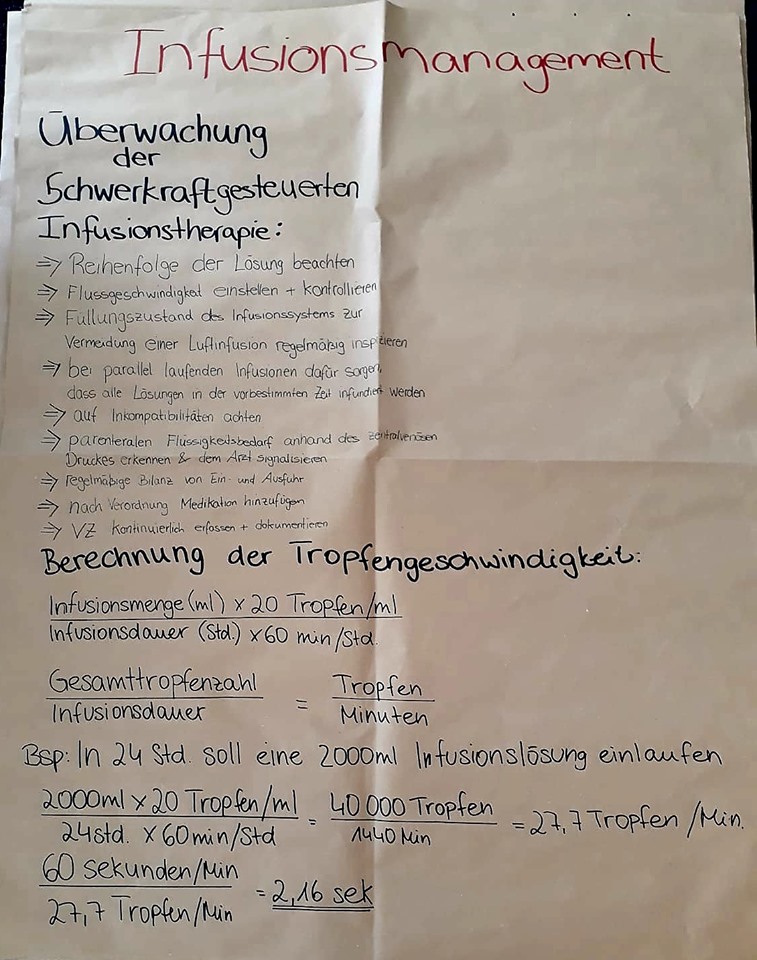 Infusionsmanagement
Überwachung
der
Schwerkraftgesteuerten
Infusionstherapie:
=> Reihenfolge der Lösung beachten
=> Flussgeschwindigkeit einstellen + kontrollieren
=> Füllungszustand des Infusionssystems zur
Vermeidung einer Luftinfusion regelmäßig inspizieren
=> bei parallel laufenden Infusionen dafür sorgen,
dass alle Lösungen in der vorbestimmten Zeit infundiert werden
=> auf Inkompatibilitäten achten
=> parenteralen Flüssigkeitsbedarf anhand des zentralvenösen
Druckes erkennen & dem Arzt signalisieren
=> regelmäßige Bilanz von Ein- und Ausfuhr
=> nach Verordnung Medikation hinzufügen
=> VZ kontinuierlich erfassen + dokumentieren
Berechnung der Tropfengeschwindigkeit:
Infusionsmenge (ml) x 20 Tropfen/ml
Infusionsdauer (Std.) x 60 min/Std.
Gesamttropfenzahl = Tropfen
Infusionsdauer Minuten
Bsp: In 24 Std. soll eine 2000ml Infusionslösung einlaufen
2000ml x 20 Tropfen/ml = 40 000 Tropfen = 27,7 Tropfen /Min.
24std. x 60min/Std 1440 Min
60 sekunden/Min = 2,16 sek
27,7 Tropfen/Min